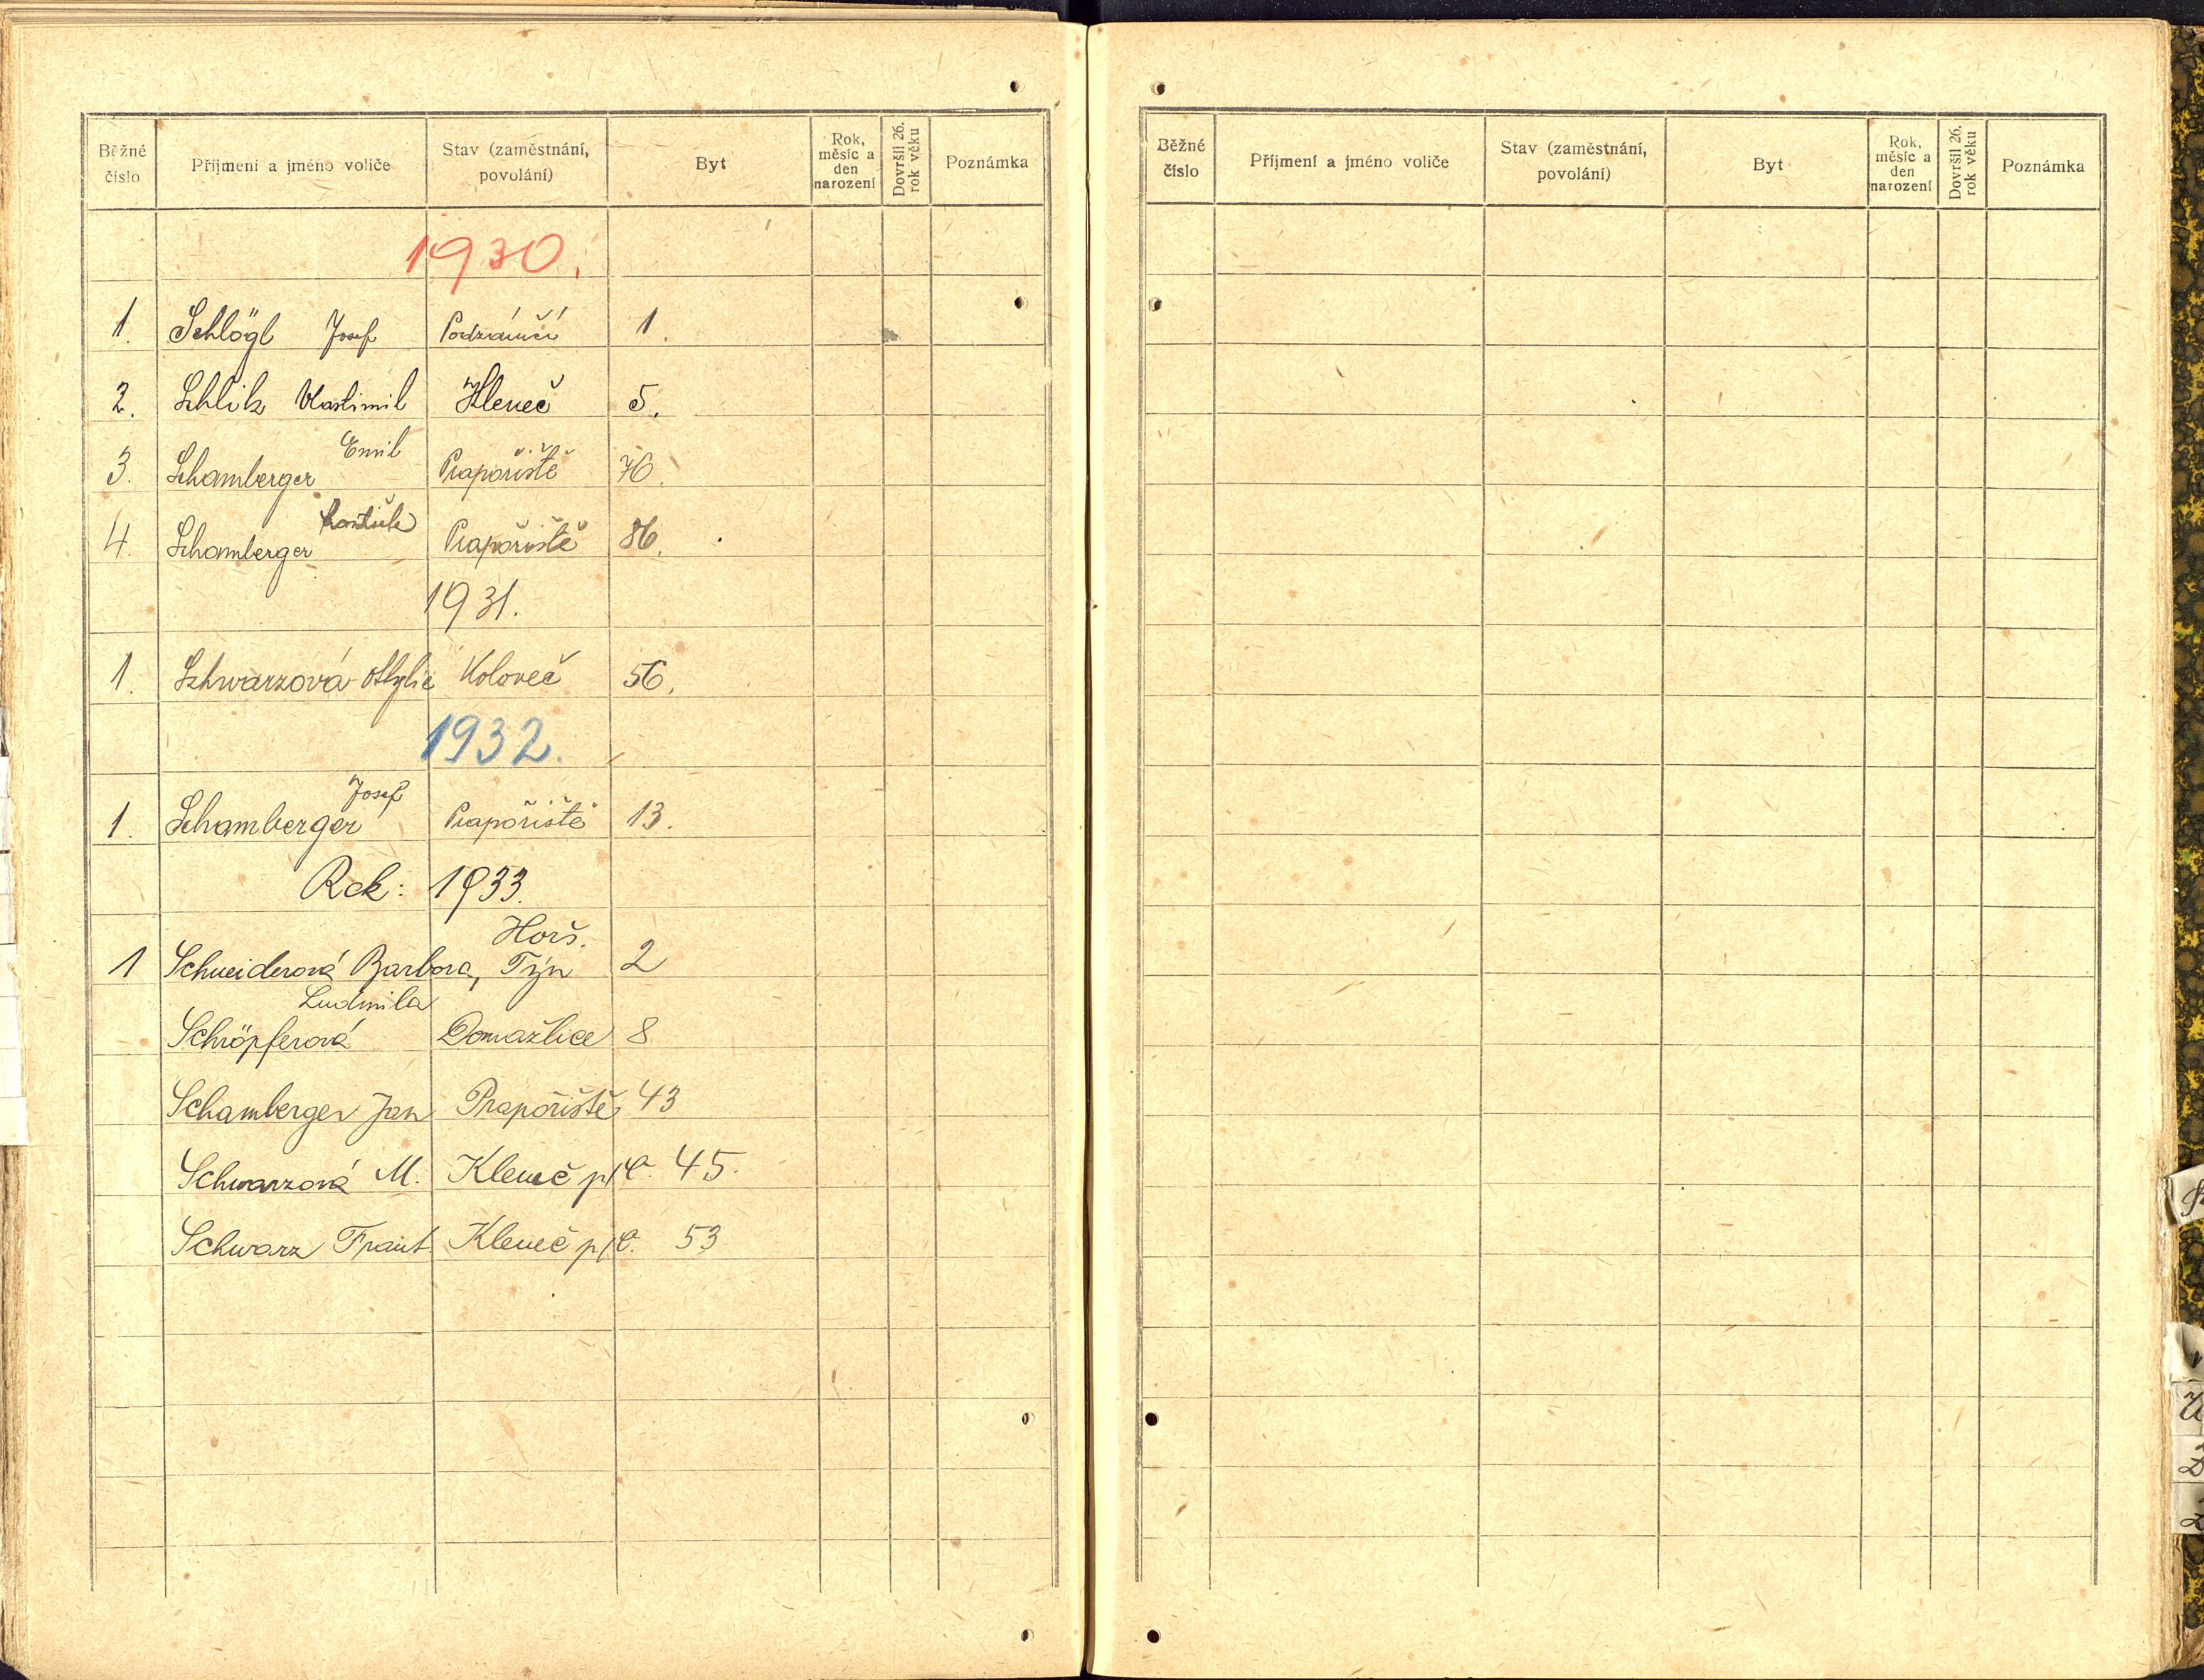 Běžné číslo | Příjmení a jméno voliče | Stav (zaměstnání, povolání) | Byt | Rok, měsíc a den narození | Dovršil 26. rok věku | Poznámka
1930.
1. Schlögl Josef | Podzámčí | 1.
2. Schlik Vlastimil | Kleneč | 5.
3. Schamberger Emil | Prapořiště | 76.
4. Schamberger | Prapořiště | 86.
1931.
1. Schwarzová Otylie | Koloveč | 56.
1932.
1. Schamberger Josef | Prapořiště | 13.
Rok: 1933.
1 Schneiderová Barbora, | Horš. Týn | 2
Schröpferová Ludmila | Domažlice | 8
Schamberger Jan | Prapořiště | 43
Schwarzová M. | Kleneč p/Č. 45.
Schwarz Frant. | Kleneč p/Č. 53
Běžné číslo | Příjmení a jméno voliče | Stav (zaměstnání, povolání) | Byt | Rok, měsíc a den narození | Dovršil 26. rok věku | Poznámka